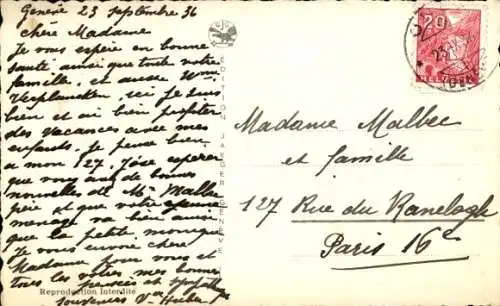 Genève 23 Septembre 36
chère Madame
Je vous espère en bonne
santé ainsi que toute votre
famille, et aussi
ici je suis
bien et ai bien profiter
des vacances avec mes
enfants, je pense bien
a mon 127, j'ose esperer
que vous ayez de bonnes
nouvelles de Mr
père et que votre jeune
menage va bien ainsi
que la petite, monique
Je vous envoie chère
Madame pour vous et
tous les votres mes bonnes
pensées et
souvenirs
Reproduction Interdite
EDITION JAEGER GENÈVE
20
HELVETIA
Madame Malbec
et famille
127 Rue du Ranelagh
Paris 16e